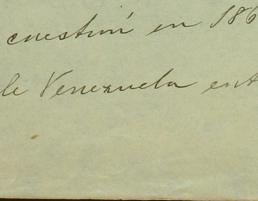 cuestión en 186
de Venezuela ent